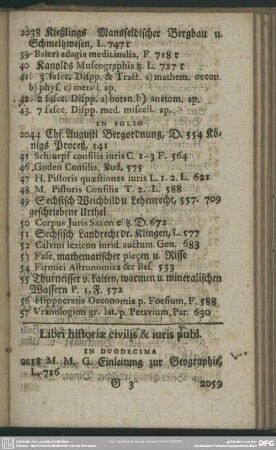 2038 Kießlings Mansfeldischer Bergbau u.
Schmeltzwesen, L. 747 r
39 Baieri adagia medicinalia, F. 718 r
40 Kanolds Museographia tz. L. 727 r
41 3 fascc. Dispp. & Tract. a) mathem. oecon.
b) phys. c) metall. ap.
42 2 fascc. Dispp. a) botan. b) anatom. ap.
43 7 fascc. Dispp. med. miscell. ap.
IN FOLIO
2044 Chr. Augusti Bergordnung, D. 554 Kö-
nigs Proceß, 541
45 Schiurpf consilia iuris C. 1-3 F. 564
46 Goden Consilia, Bud, 575
47 H. Pistoris quæstiones iuris L. 1. 2. L. 621
48 M. Pistoris Consilia T. 2. L. 588
49 Sechsisch Weichbild u. Lehenrecht, 557. 709
geschriebene Urthel
50 Corpus Juris Saxon c. tz D. 672
51 Sechsisch Landrecht dr. Klingen, L. 577
52 Calvini lexicon iurid. auctum. Gen. 683
53 Fasc. mathematischer pieçen u. Risse
54 Firmici Astronomica &c Bas. 533
55 Thurneisser v. kalten, warmen u. mineralischen
Wassern P. 1, F. 572
56 Hippocratis Oeconomia p. Foesium, F. 588
57 Vranologion gr. lat. p. Petavium, Par. 630
Libri historiæ civilis & iuris publ.
IN DUODECIMA
2058 M. M. G. Einleitung zur Geographie,
L. 716
G 3
2059